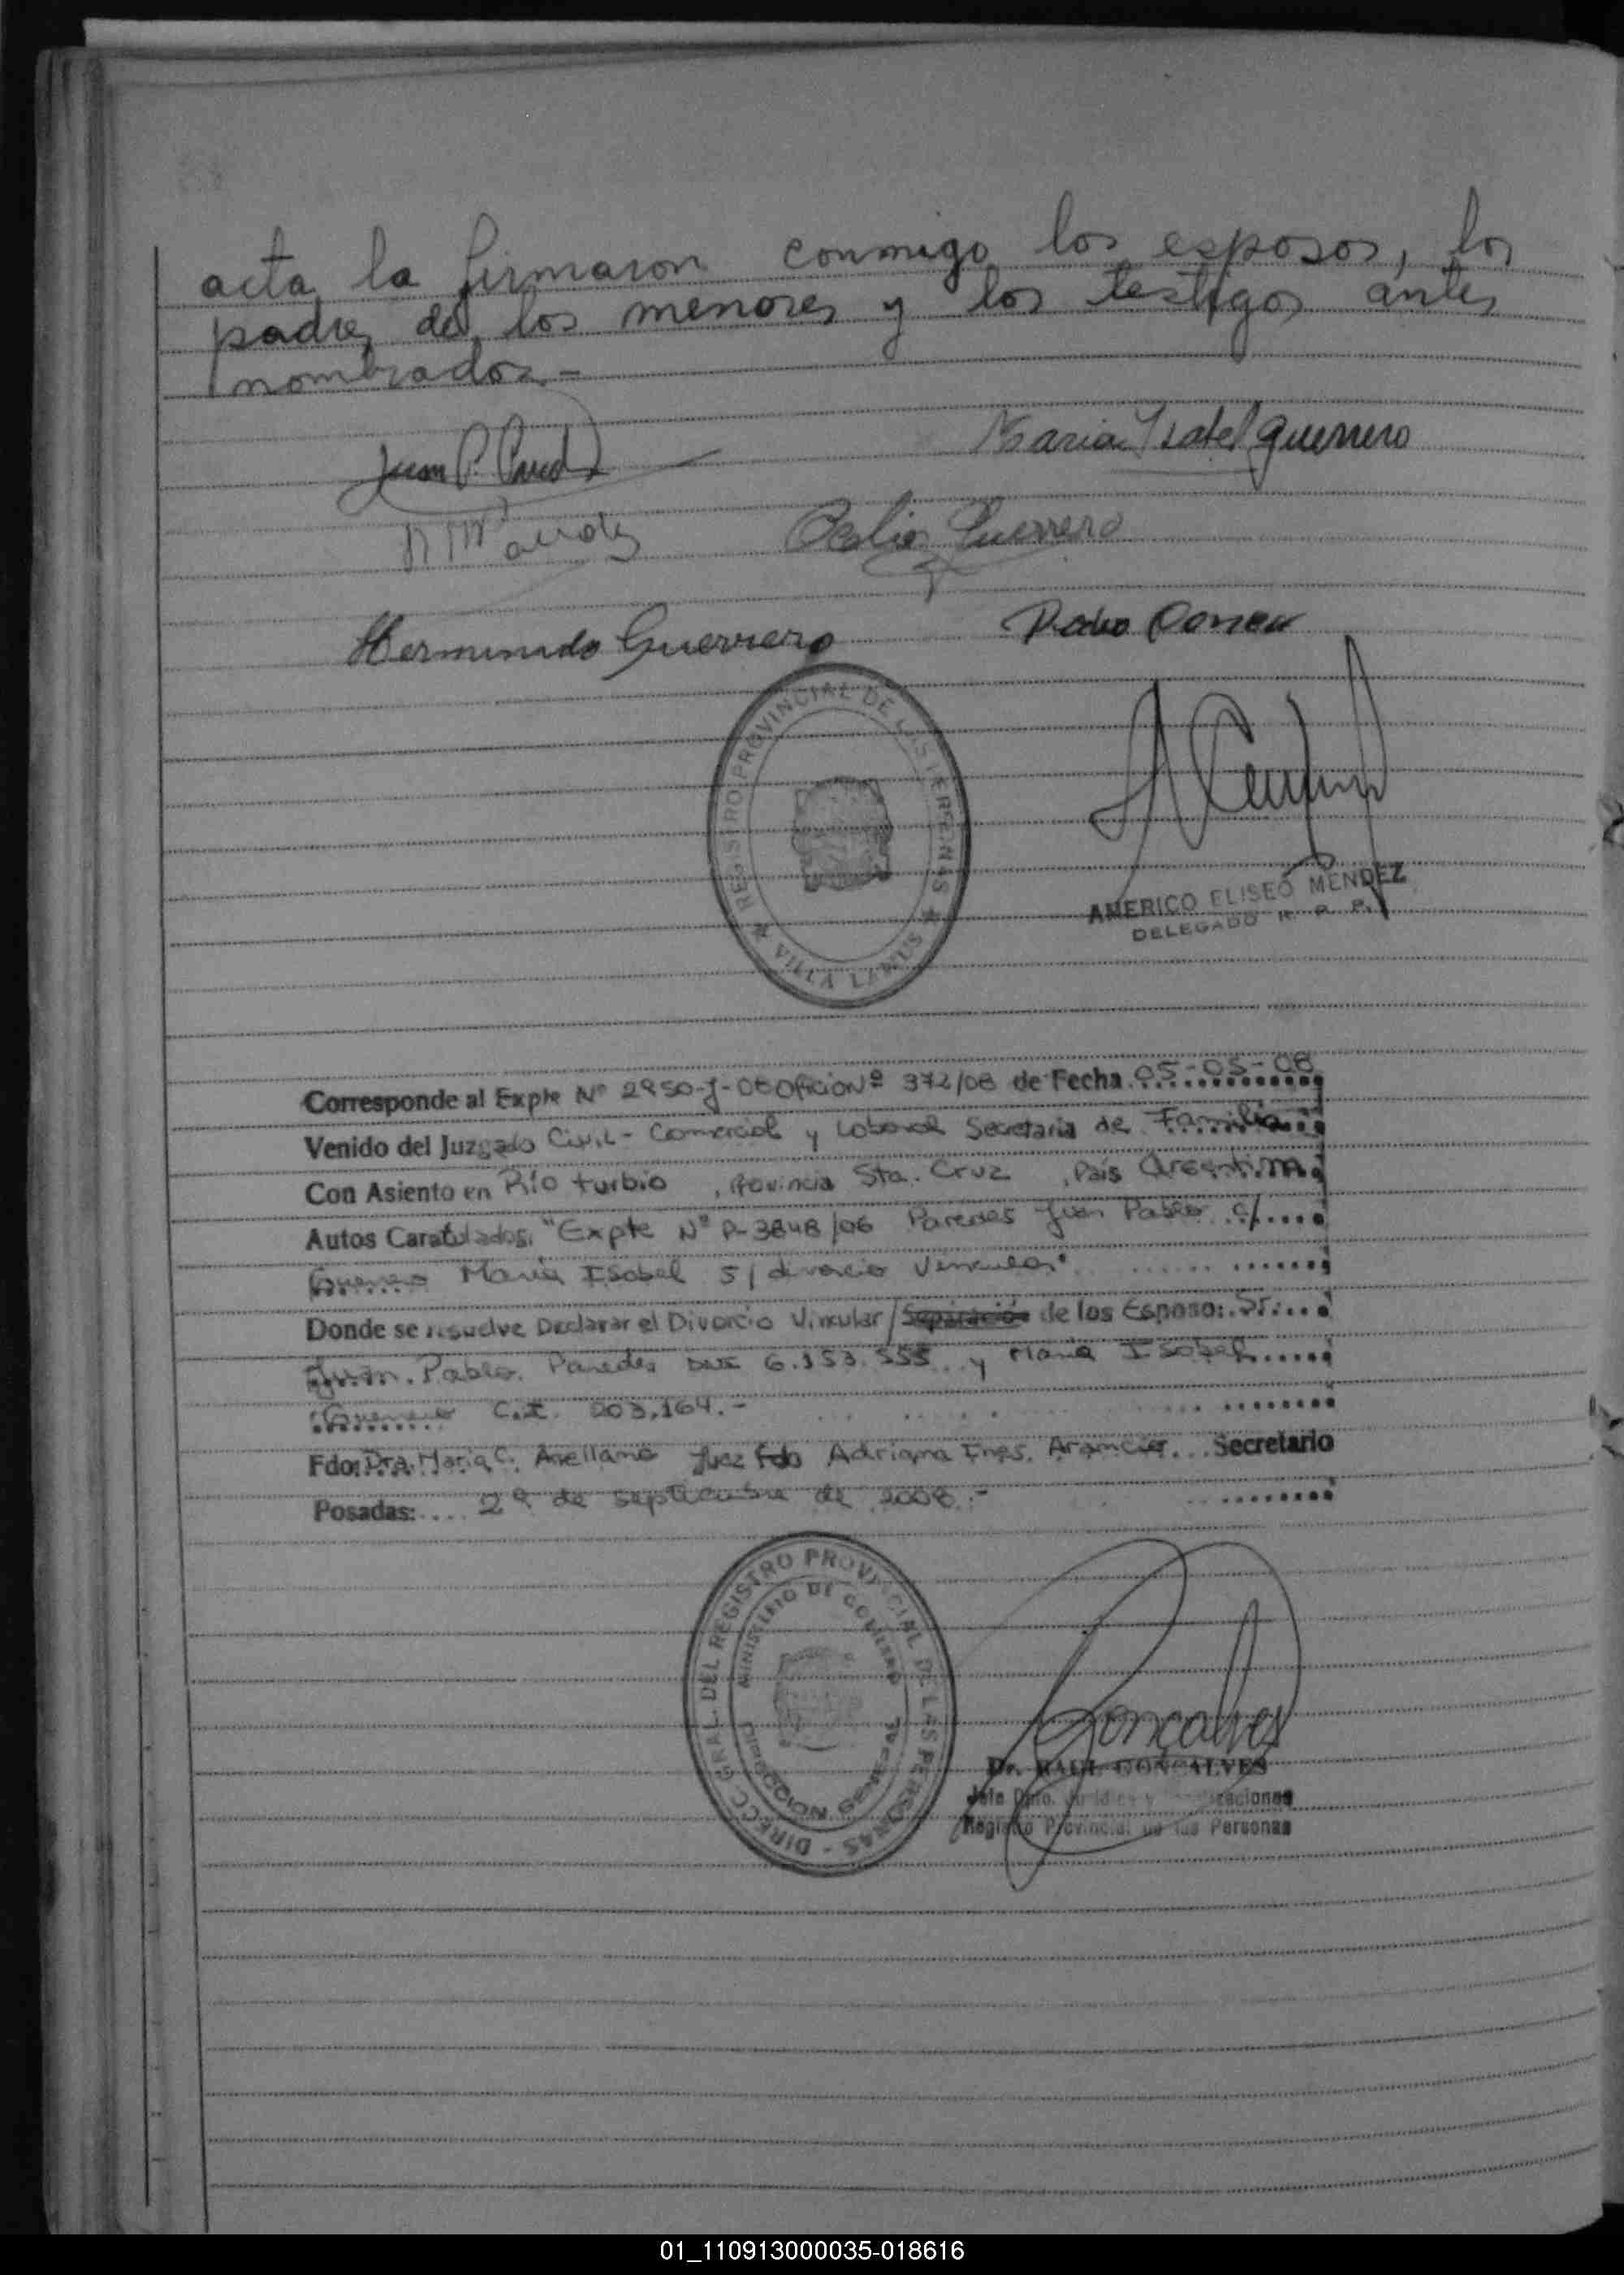 acta, la firmaron conmigo los esposos, los
padres de los menores y los testigos antes
nombrados.-
Juan P.
Maria Isabel Guerrero
Guerrero
Herminido Guerrero
Pedro
REGISTRO PROVINCIAL DE LAS PERSONAS
VILLA
AMERICO ELISEO MENDEZ
DELEGADO R. P. P.
Corresponde al Expte Nº 2950-J-08 Oficio Nº 372/08 de Fecha 05-05-08
Venido del Juzgado Civil - Comercial y Laboral Secretaria de Familia
Con Asiento en Río turbio, Provincia Sta. Cruz, País Argentina
Autos Caratulados: "Expte Nº P-3848/06 Paredes Juan Pablo c/
Guerrero María Isabel s/ divorcio Vincular"
Donde se resuelve Declarar el Divorcio Vincular/Separación de los Esposo: Sr.
Juan Pablo Paredes DNI 6.353.555 y María Isabel
Guerrero C.I. 203.164.-
Fdo: Dra. Maria C. Arellano Juez Fdo Adriana Ines Secretario
Posadas: 29 de septiembre de 2008.-
DIRECC. GRAL. DEL REGISTRO PROVINCIAL DE LAS PERSONAS
MINISTERIO DE GOBIERNO
DIRECCION GENERAL
Goncalves
Dr. RAUL GONCALVES
Jefe Dpto.
Registro Provincial de las Personas
01_110913000035-018616